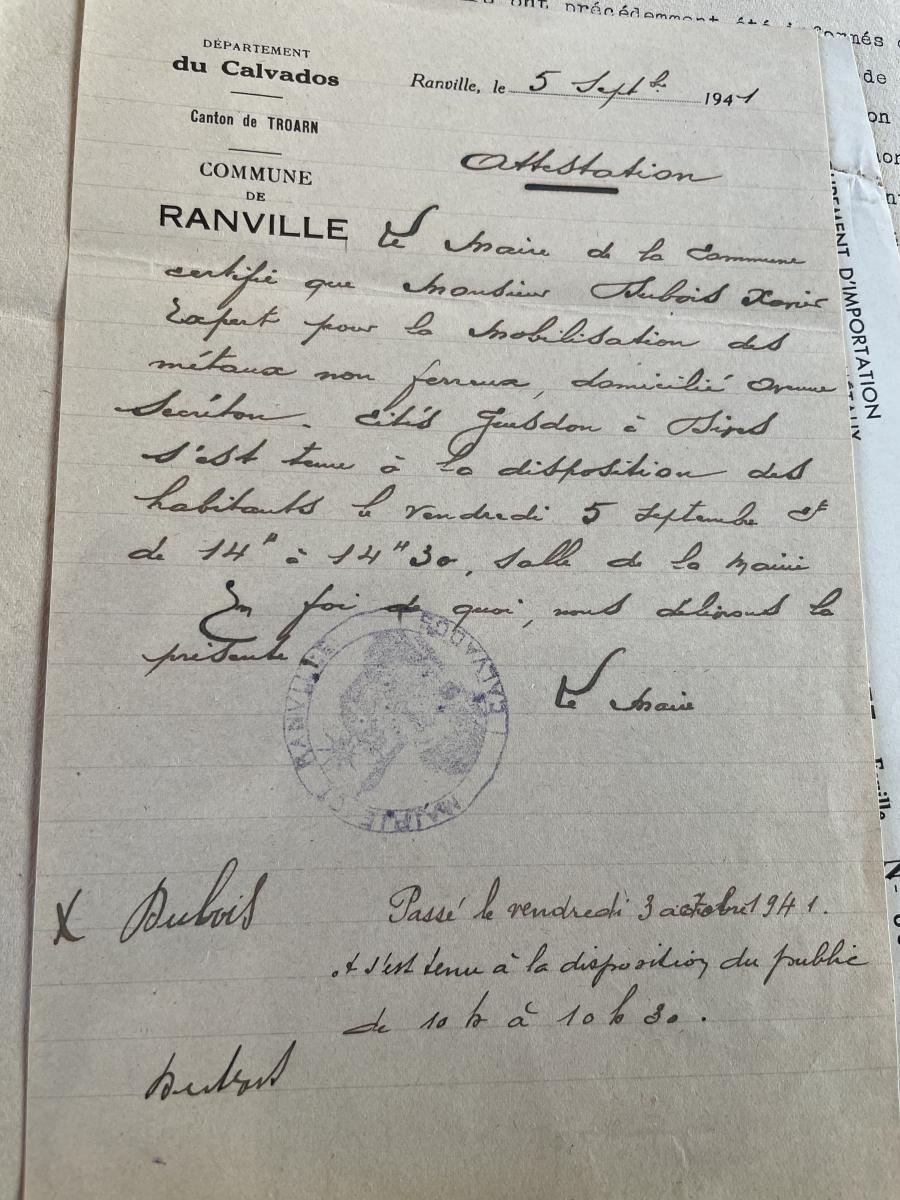 DÉPARTEMENT
du Calvados
Canton de TROARN
COMMUNE
DE
RANVILLE
Ranville, le 5 Sept bre 1941
Attestation
Le Maire de la Commune
certifie que Monsieur Dubois Xavier
Expert pour la Mobilisation des
métaux non ferreux, domicilié Avenue
Secréton - Cités Guesdon à Dives
s'est tenue à la disposition des
habitants le vendredi 5 septembre ct
de 14 H à 14 H 30, salle de la Mairie
En foi de quoi, nous délivrons la
présente
Le Maire
MAIRIE DE RANVILLE
CALVADOS
X Dubois
Passé le vendredi 3 octobre 1941.
et s'est tenu à la disposition du public
de 10 h à 10 h 30.
Dubois
ont précédemment été informés
de
D'IMPORTATION